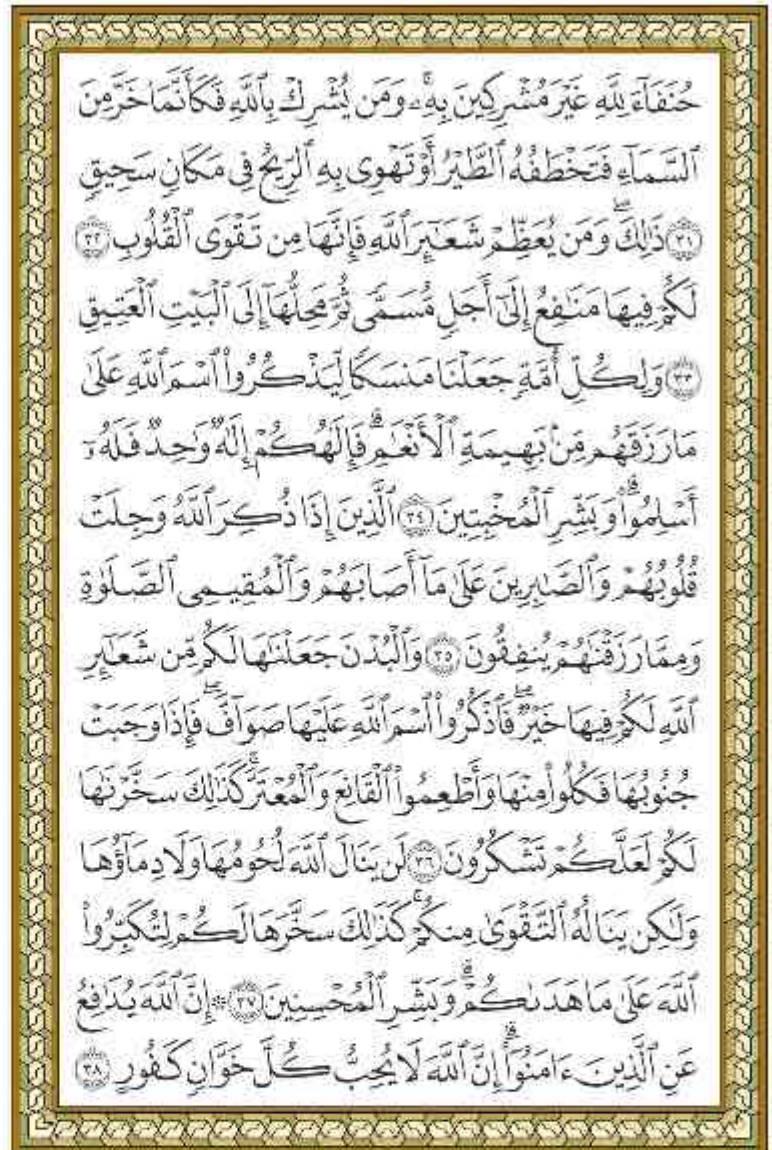 حُنَفَآءَ لِلَّهِ غَيْرَ مُشْرِكِينَ بِهِۦۚ وَمَن يُشْرِكْ بِٱللَّهِ فَكَأَنَّمَا خَرَّ مِنَ
ٱلسَّمَآءِ فَتَخْطَفُهُ ٱلطَّيْرُ أَوْ تَهْوِى بِهِ ٱلرِّيحُ فِى مَكَانٍ سَحِيقٍ
٣١ ذَٰلِكَۖ وَمَن يُعَظِّمْ شَعَـٰٓئِرَ ٱللَّهِ فَإِنَّهَا مِن تَقْوَى ٱلْقُلُوبِ ٣٢
لَكُمْ فِيهَا مَنَـٰفِعُ إِلَىٰٓ أَجَلٍ مُّسَمًّى ثُمَّ مَحِلُّهَآ إِلَى ٱلْبَيْتِ ٱلْعَتِيقِ
٣٣ وَلِكُلِّ أُمَّةٍ جَعَلْنَا مَنسَكًا لِّيَذْكُرُوا۟ ٱسْمَ ٱللَّهِ عَلَىٰ
مَا رَزَقَهُم مِّنۢ بَهِيمَةِ ٱلْأَنْعَـٰمِۗ فَإِلَـٰهُكُمْ إِلَـٰهٌ وَٰحِدٌ فَلَهُۥٓ
أَسْلِمُوا۟ۗ وَبَشِّرِ ٱلْمُخْبِتِينَ ٣٤ ٱلَّذِينَ إِذَا ذُكِرَ ٱللَّهُ وَجِلَتْ
قُلُوبُهُمْ وَٱلصَّـٰبِرِينَ عَلَىٰ مَآ أَصَابَهُمْ وَٱلْمُقِيمِى ٱلصَّلَوٰةِ
وَمِمَّا رَزَقْنَـٰهُمْ يُنفِقُونَ ٣٥ وَٱلْبُدْنَ جَعَلْنَـٰهَا لَكُم مِّن شَعَـٰٓئِرِ
ٱللَّهِ لَكُمْ فِيهَا خَيْرٌۖ فَٱذْكُرُوا۟ ٱسْمَ ٱللَّهِ عَلَيْهَا صَوَآفَّۖ فَإِذَا وَجَبَتْ
جُنُوبُهَا فَكُلُوا۟ مِنْهَا وَأَطْعِمُوا۟ ٱلْقَانِعَ وَٱلْمُعْتَرَّۚ كَذَٰلِكَ سَخَّرْنَـٰهَا
لَكُمْ لَعَلَّكُمْ تَشْكُرُونَ ٣٦ لَن يَنَالَ ٱللَّهَ لُحُومُهَا وَلَا دِمَآؤُهَا
وَلَـٰكِن يَنَالُهُ ٱلتَّقْوَىٰ مِنكُمْۚ كَذَٰلِكَ سَخَّرَهَا لَكُمْ لِتُكَبِّرُوا۟
ٱللَّهَ عَلَىٰ مَا هَدَىٰكُمْۗ وَبَشِّرِ ٱلْمُحْسِنِينَ ٣٧ ۞ إِنَّ ٱللَّهَ يُدَٰفِعُ
عَنِ ٱلَّذِينَ ءَامَنُوٓا۟ۗ إِنَّ ٱللَّهَ لَا يُحِبُّ كُلَّ خَوَّانٍ كَفُورٍ ٣٨